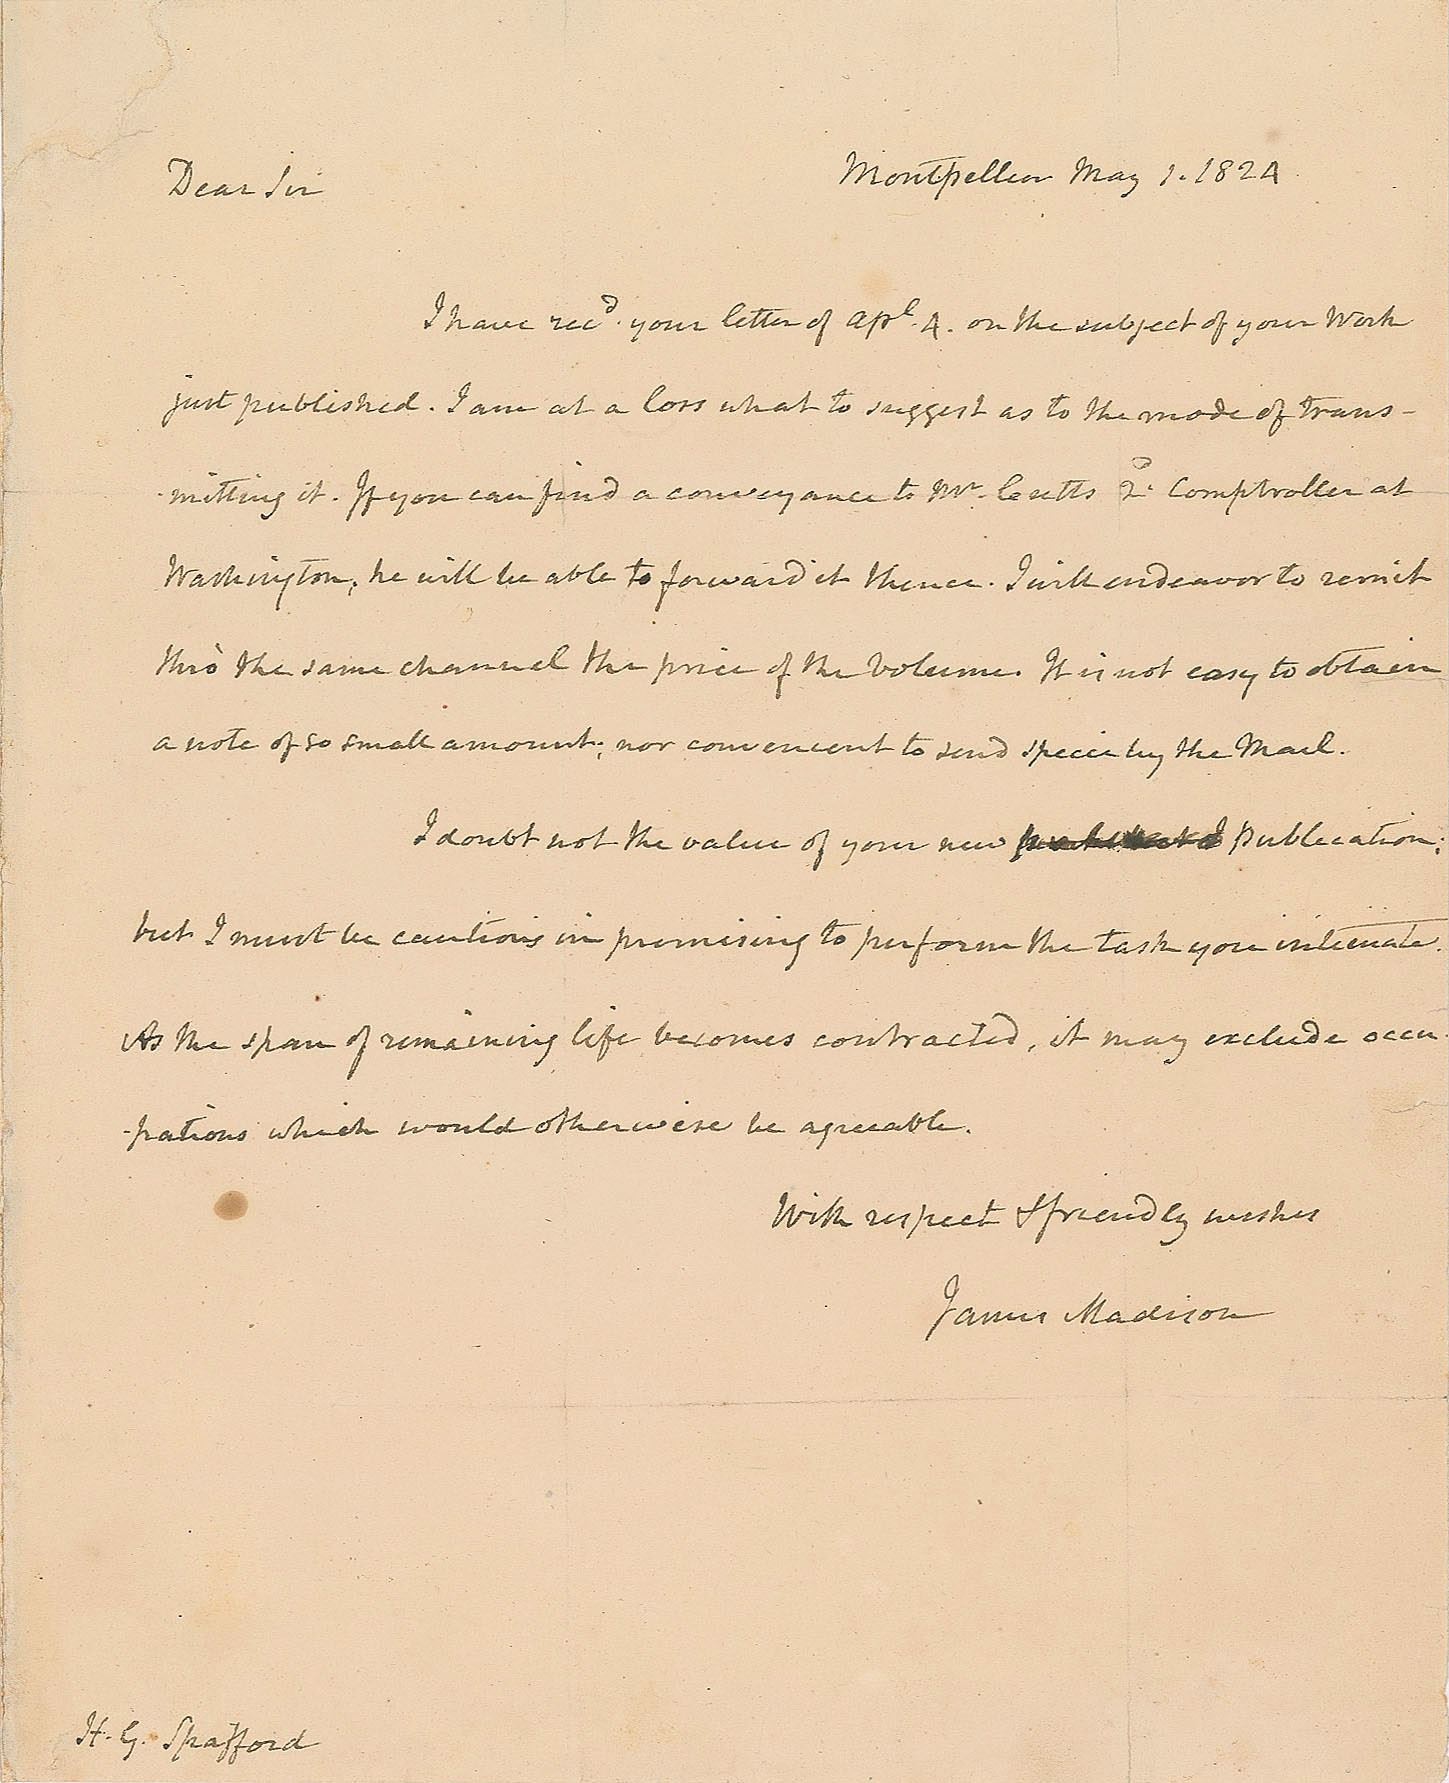 Montpellier May 1. 1824
Dear Sir
I have recd. your letter of Apl. 4. on the subject of your Work
just published. I am at a loss what to suggest as to the mode of trans-
-mitting it. If you can find a conveyance to Mr. Cutts 2d. Comptroller at
Washington, he will be able to forward it thence. I will endeavor to remit
thro' the same channel the price of the Volume. It is not easy to obtain
a note of so small amount; nor convenient to send specie by the Mail.
I doubt not the value of your new publication;
but I must be cautious in promising to perform the task you intimate.
As the span of remaining life becomes contracted, it may exclude occu-
-pations which would otherwise be agreeable.
With respect & friendly wishes
James Madison
H. G. Spafford